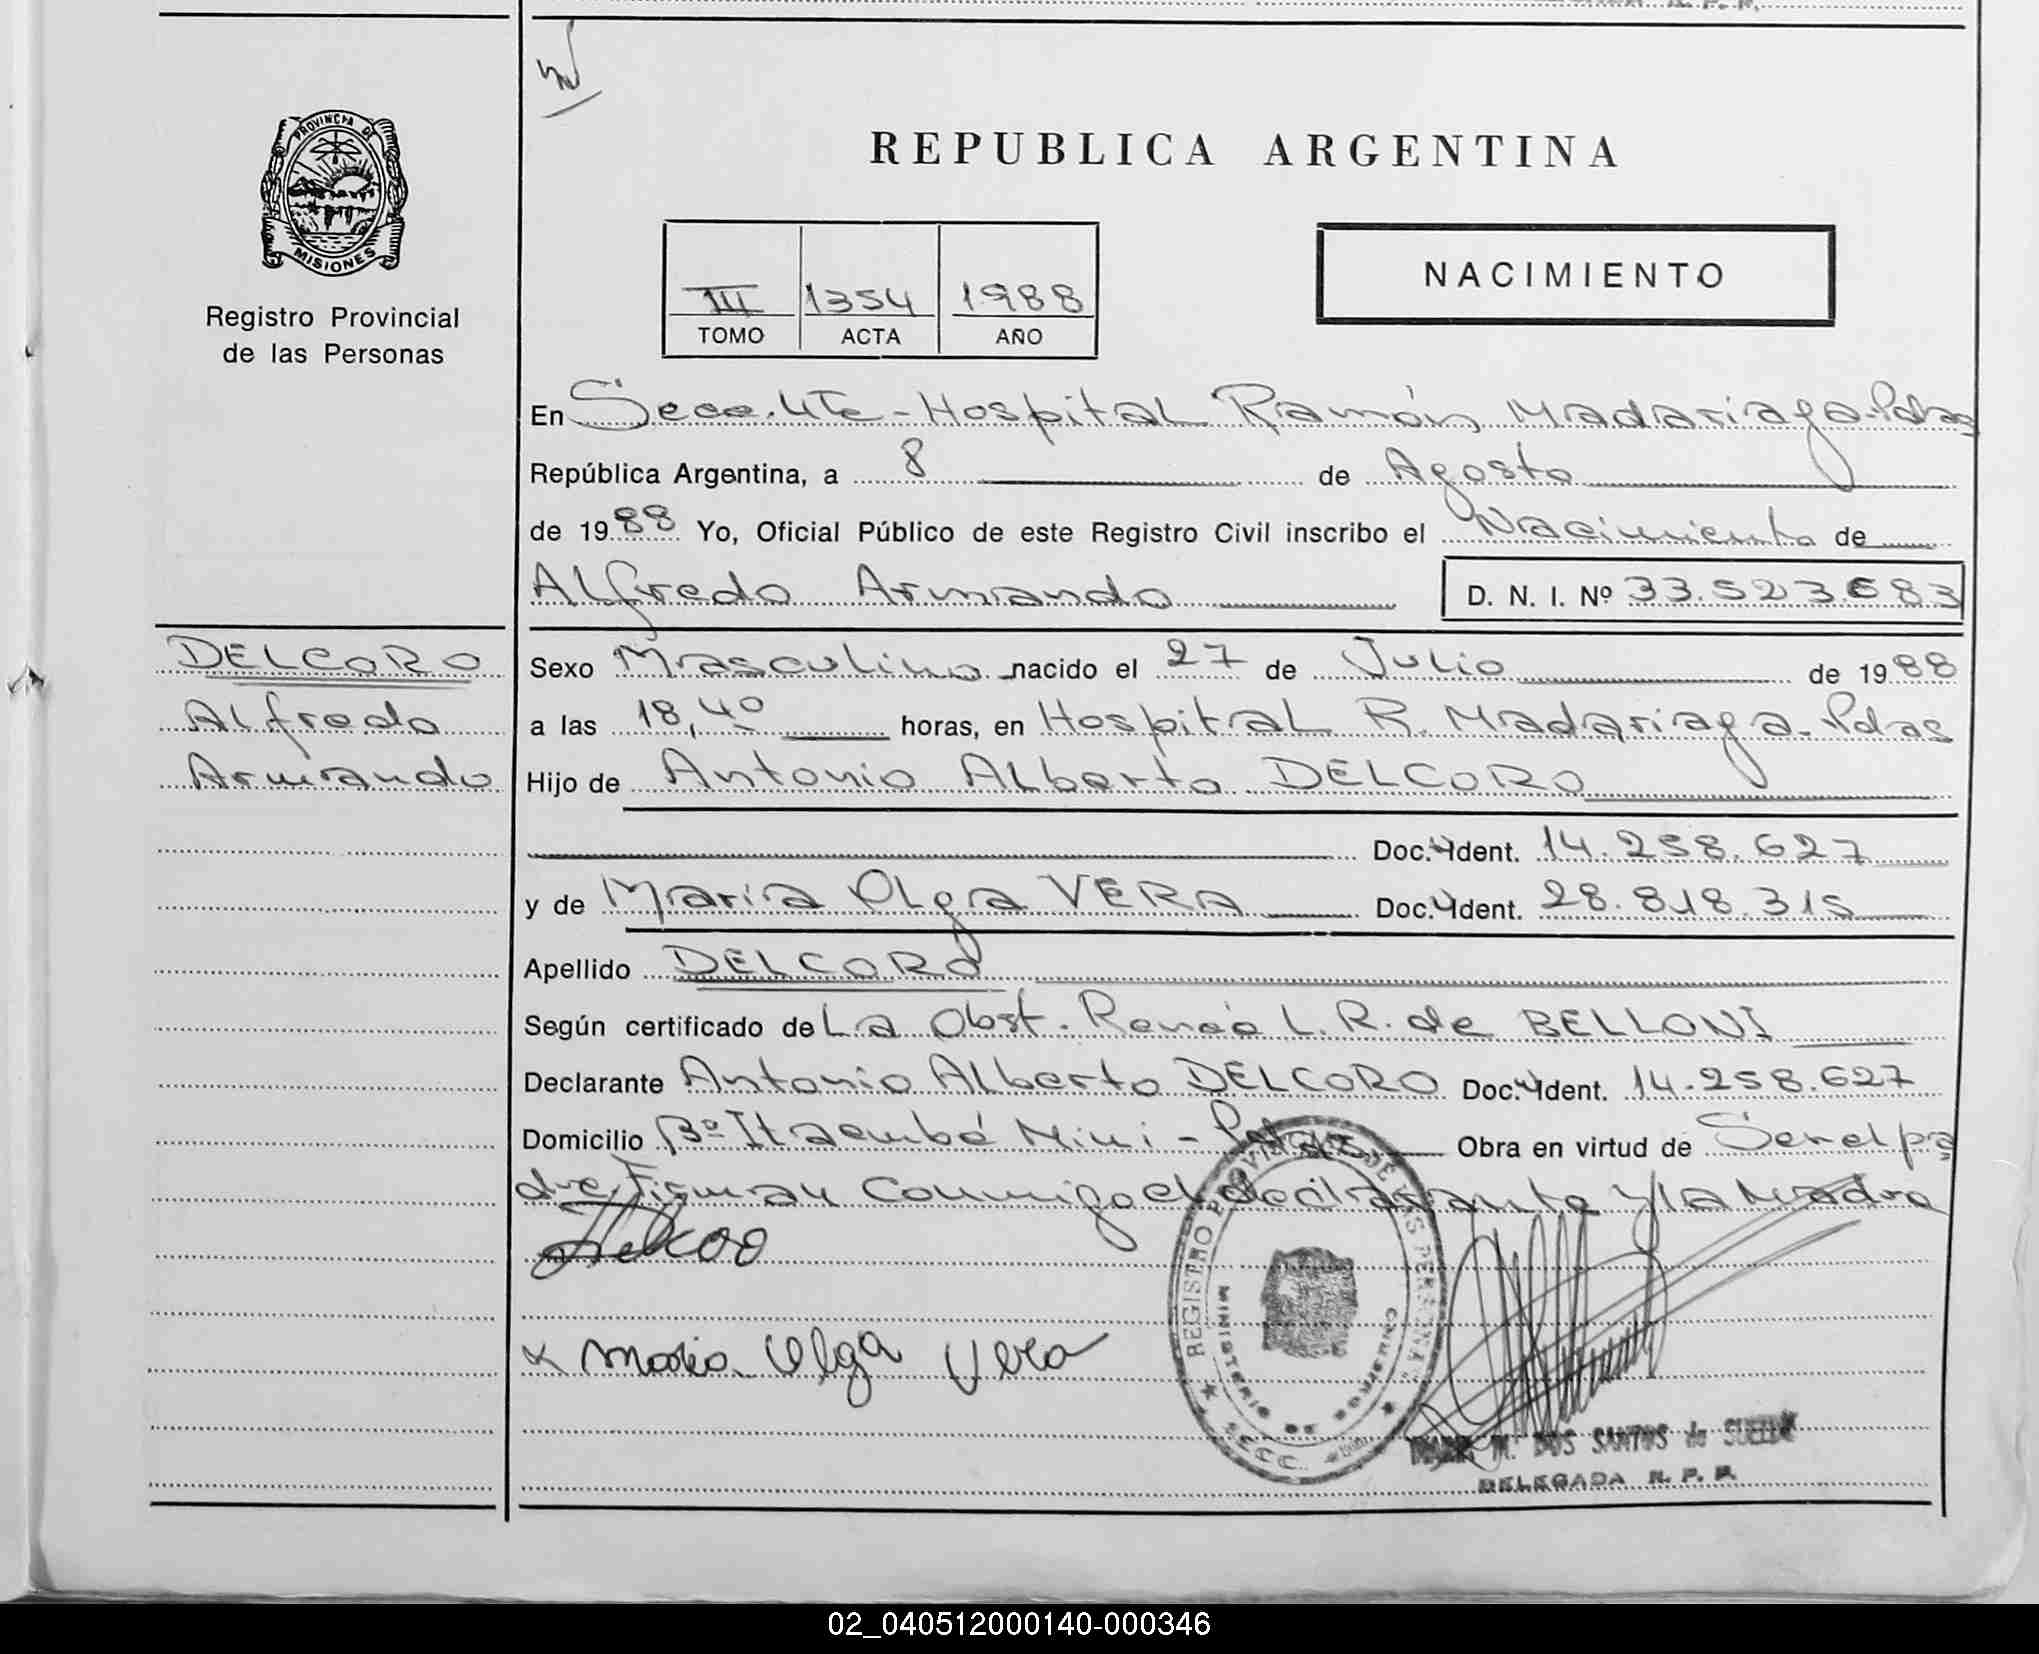 PROVINCIA DE
MISIONES
Registro Provincial
de las Personas
DELCORO
Alfredo
Armando
REPUBLICA ARGENTINA
III 1354 1988
TOMO ACTA AÑO
NACIMIENTO
En Secc. 4Te - Hospital Ramón Madariaga - Pdas
República Argentina, a 8 de Agosto
de 1988 Yo, Oficial Público de este Registro Civil inscribo el Nacimiento de
Alfredo Armando D. N. I. Nº 33.523.683
Sexo Masculino nacido el 27 de Julio de 1988
a las 18,40 horas, en Hospital R. Madariaga - Pdas
Hijo de Antonio Alberto DELCORO
Doc. Ident. 14.258.627
y de María Olga VERA Doc. Ident. 28.818.315
Apellido DELCORO
Según certificado de La Obst. Reneé L. R. de BELLONI
Declarante Antonio Alberto DELCORO Doc. Ident. 14.258.627
Domicilio Bº Itaembé Mini - Pdas Obra en virtud de Ser el pa
dre, Firman Conmigo el declarante y la Madre
Delcoro
x Maria Olga Vera
REGISTRO PROVINCIAL DE LAS PERSONAS
MINISTERIO DE GOBIERNO
M. DOS SANTOS de
DELEGADA R. P. P.
02_040512000140-000346